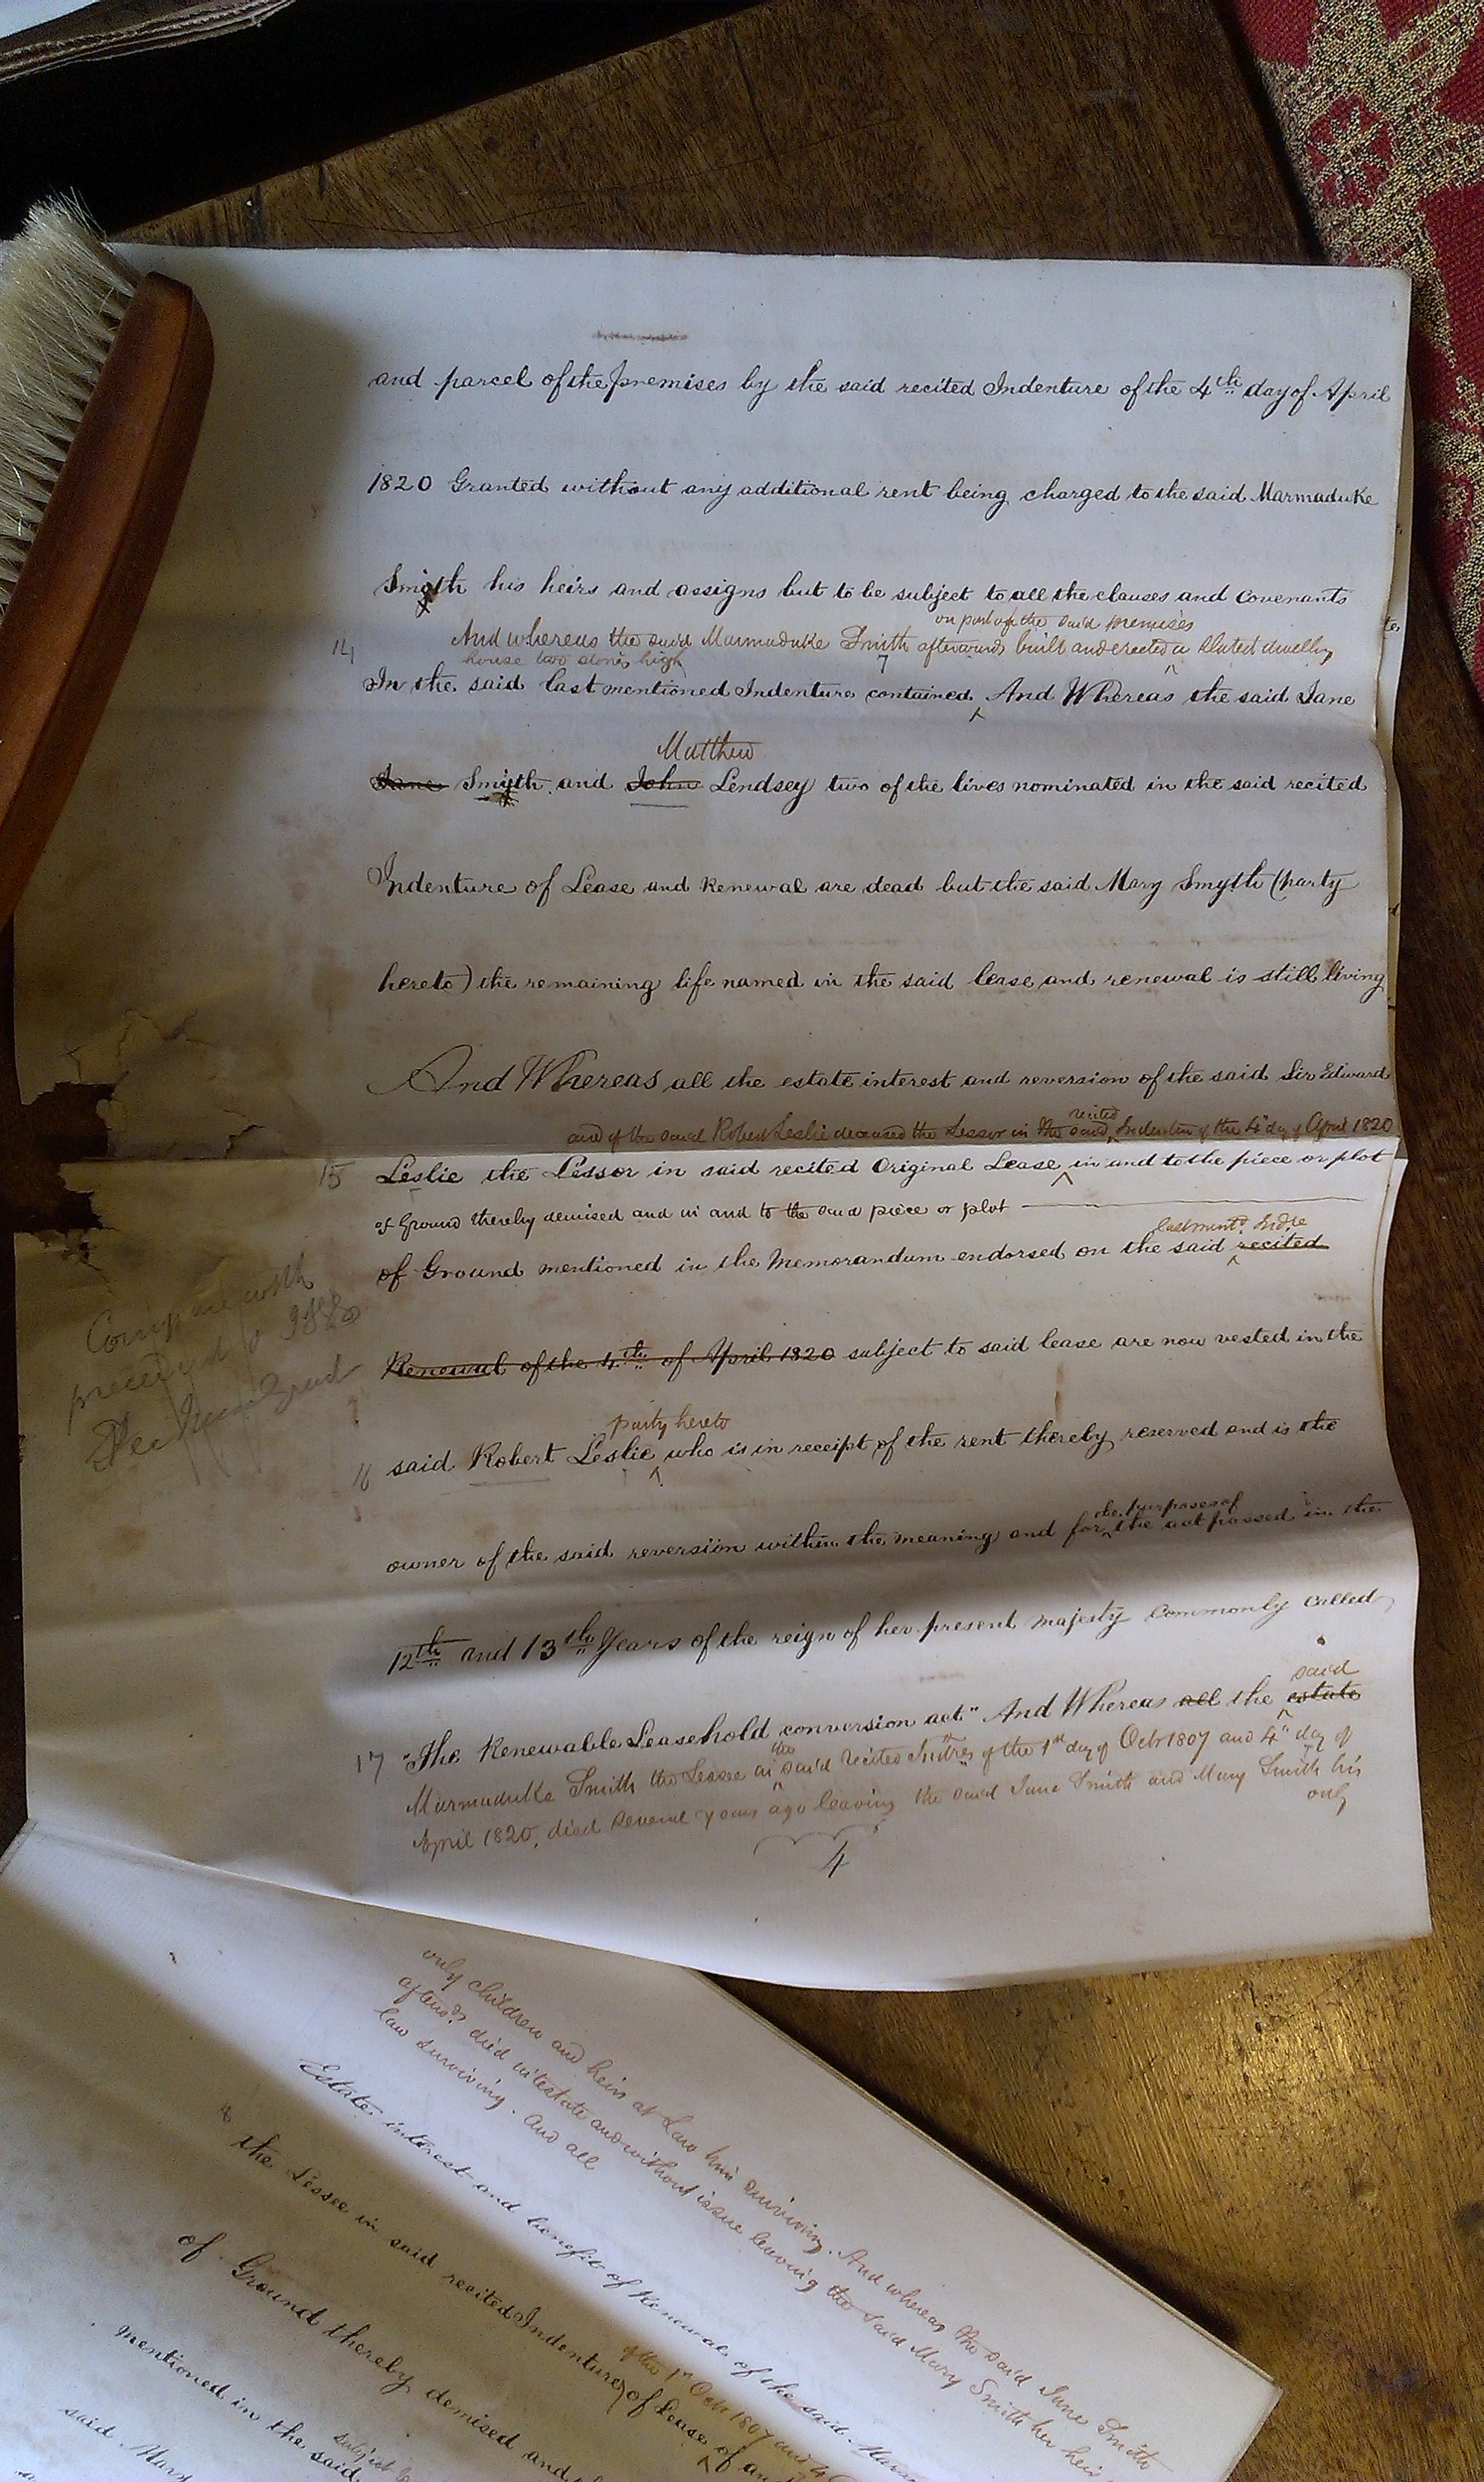 and parcel of the premises by the said recited Indenture of the 4th day of April
1820 Granted without any additional rent being charged to the said Marmaduke
Smyth his heirs and assigns but to be subject to all the clauses and Covenants
on part of the said premises
14 And whereas the said Marmaduke Smith afterwards built and erected a slated dwelling
house two stories high
In the said last mentioned Indenture contained And Whereas the said Jane
Matthew
Jane Smyth and John Lendsey two of the lives nominated in the said recited
Indenture of Lease and Renewal are dead but the said Mary Smyth (party
hereto) the remaining life named in the said lease and renewal is still living
And Whereas all the estate interest and reversion of the said Sir Edward
recited
and of the said Robert Leslie deceased the Lessor in the said Indenture of the 4th day of April 1820
15 Leslie the Lessor in said recited Original Lease in and to the piece or plot
of Ground thereby demised and in and to the said piece or plot
last ment.d Ind.re
of Ground mentioned in the Memorandum endorsed on the said recited
Compare with
Renewal of the 4th of April 1820 subject to said lease are now vested in the
party hereto
16 said Robert Leslie who is in receipt of the rent thereby reserved and is the
the purposes of
owner of the said reversion within the meaning and for the act passed in the
12th and 13th Years of the reign of her present majesty Commonly called
said
17 "The Renewable Leasehold conversion act" And Whereas all the estate
the
Marmaduke Smith the Lessee in said recited Indres of the 1st day of Octr 1807 and 4th day of
April 1820, died several years ago leaving the said Jane Smith and Mary Smith his
only
4
only children and heirs at Law him surviving. And whereas the said Jane Smith
afterwds died intestate and without issue leaving the said Mary Smith her heir
law surviving. And all
Estate interest and benefit of Renewal of the said
of the 1st Octr 1807 and 4
8 the Lessee in said recited Indentures of Lease of
of Ground thereby demised and
subject
mentioned in the said
said Mary